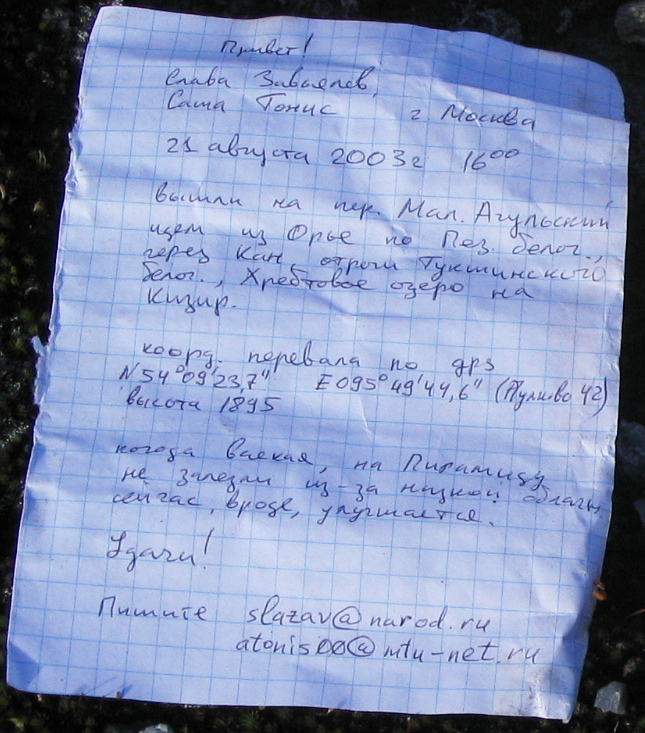 Привет!
Слава Завьялов,
Саша Тонис г Москва
21 августа 2003г 16⁰⁰
вышли на пер. Мал. Агульский
идем из Орье по Пез. белог.,
через Кан, отроги Тукшинского
белог., Хребтовое озеро на
Кизир.
коорд. перевала по gps
N54°09'23,7" E095°49'44,6" (Пулково 42)
высота 1895
погода всякая, на Пирамиду
не залезли из-за низкой облачн.
сейчас, вроде, улучшается.
Удачи!
Пишите slazav@narod.ru
atonis00@mtu-net.ru